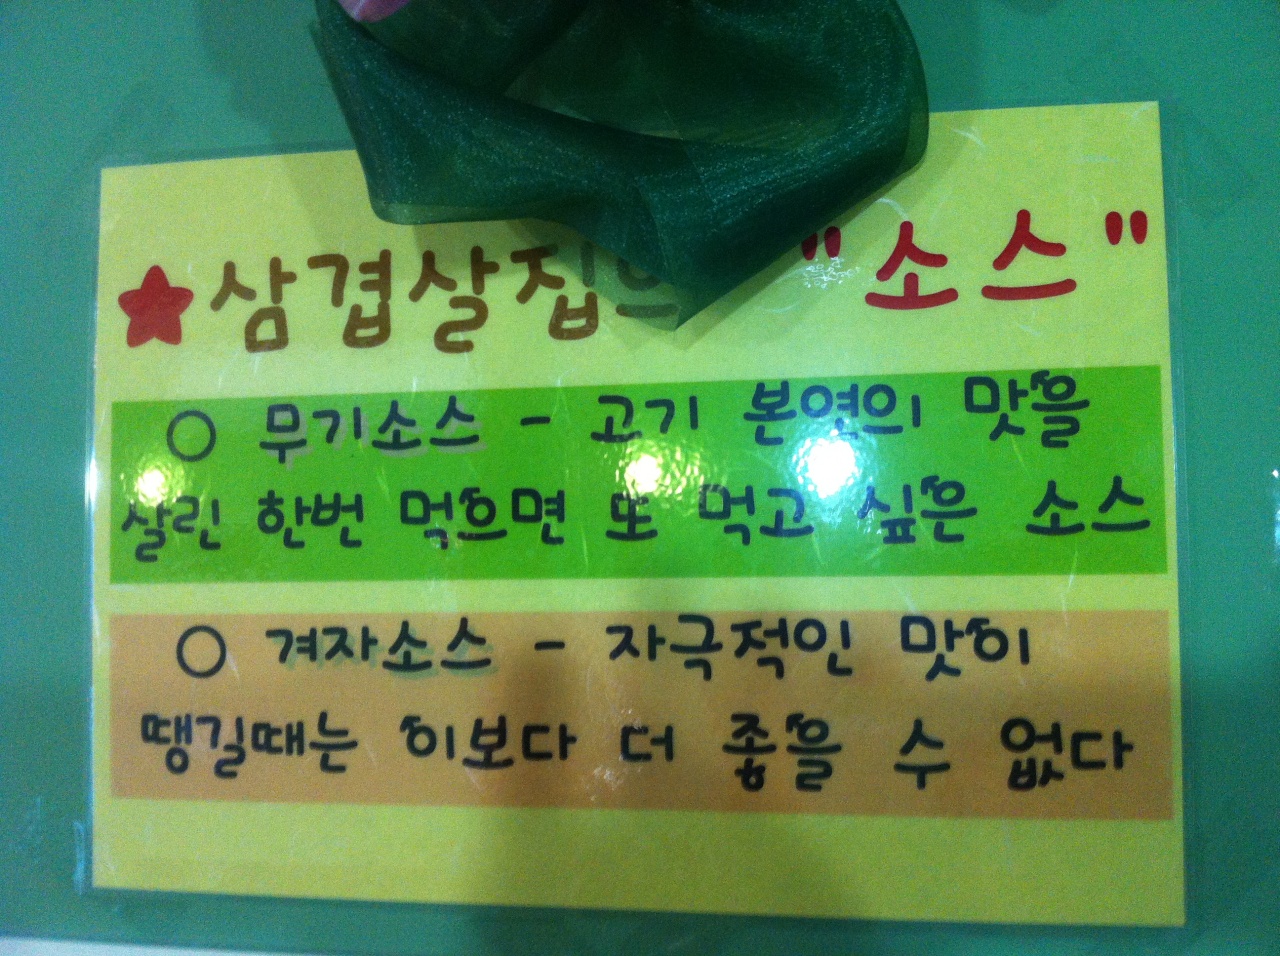 ★삼겹살집의 "소스"
○ 무기소스 - 고기 본연의 맛을
살린 한번 먹으면 또 먹고 싶은 소스
○ 겨자소스 - 자극적인 맛이
땡길때는 이보다 더 좋을 수 없다